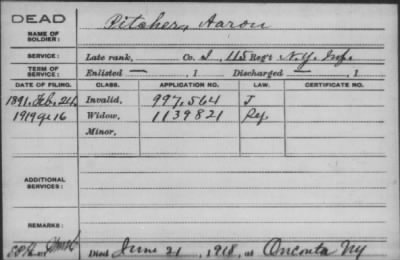 DEAD
NAME OF SOLDIER: Pitcher, Aaron
SERVICE: Late rank, Co. I, 115 Reg't N.Y. Inf.
TERM OF SERVICE: Enlisted —, 1 Discharged —, 1
DATE OF FILING. CLASS. APPLICATION NO. LAW. CERTIFICATE NO.
1891, Feb. 24 Invalid, 997,564 J
1919 16 Widow, 1139821
Minor,
ADDITIONAL SERVICES:
REMARKS:
Died June 21, 1918, at Oneonta NY